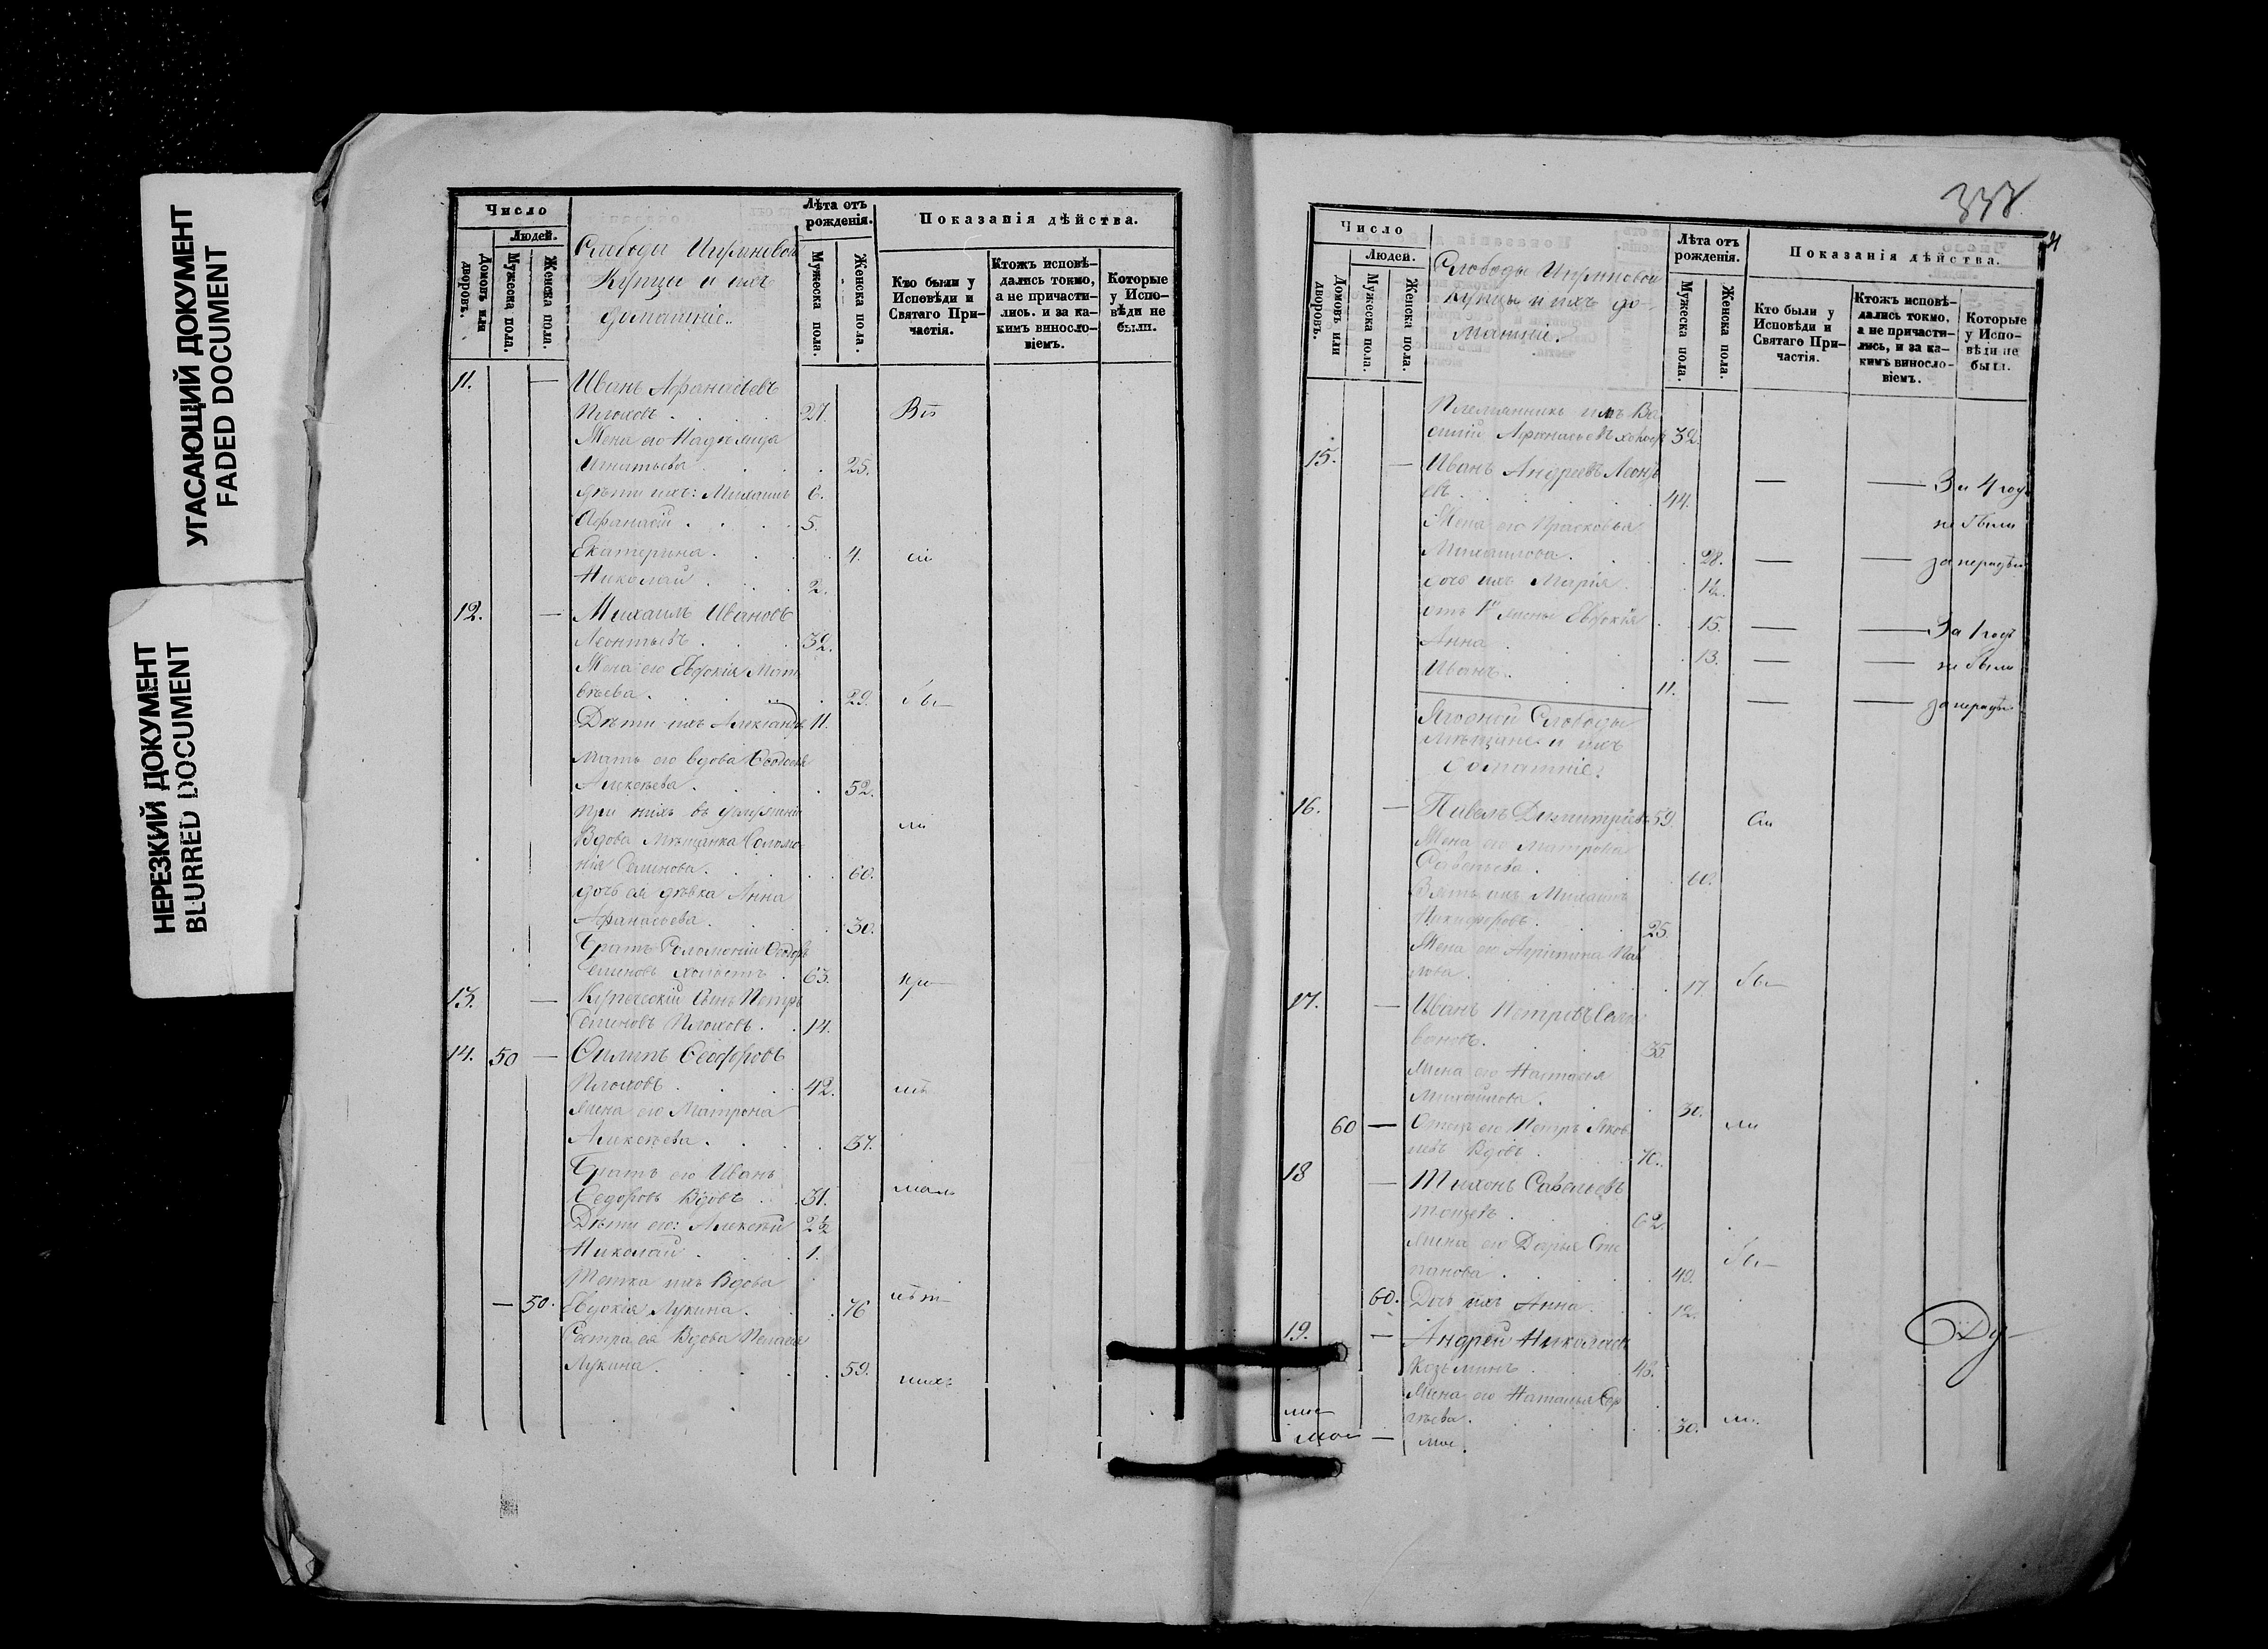 УГАСАЮЩИЙ ДОКУМЕНТ
FADED DOCUMENT
НЕРЕЗКИЙ ДОКУМЕНТ
BLURRED DOCUMENT
Число
Людей.
Домовъ или дворовъ.
Мужеска пола.
Женска пола.
Слободы
Купцы и ихъ
домашніе.
Лѣта отъ рожденія.
Мужеска пола.
Женска пола.
Показанія дѣйства.
Кто были у Исповѣди и Святаго Причастія.
Ктожъ исповѣдались токмо, а не причастились. и за какимъ винословіемъ.
Которые у Исповѣди не были.
11. — Иванъ Афанасьевъ
Плоховъ . 27. Всѣ
Жена его Надежда
Игнатьева . 25.
дѣти ихъ: Михаилъ 6.
Афанасій . 5.
Екатерина . 4. сіи
Николай . 2.
12. — Михаилъ Ивановъ
Леонтьевъ . 32.
Жена его Евдокія Мат
вѣева . 29. бы—
Дѣти ихъ Александръ 11.
Мать его вдова Ѳеодосія
Алексѣева . 52.
при нихъ въ
Вдова Мѣщанка Соломо
нія Семенова . 60. ли
дочь ея дѣвка Анна
Афанасьева . 30.
Братъ Соломоніи Ѳедоръ
Семеновъ холостъ . 63. при—
13. — Купеческій сынъ Петръ
Семеновъ Плоховъ . 14.
14. 50 — Филипъ Ѳеодоровъ
Плоховъ . 42.
Жена его Матрона
Алексѣева . 37.
Братъ его Иванъ
Ѳедоровъ Вдовъ . 31.
Дѣти его: Алексѣй 2½
Николай . 1.
Тетка ихъ Вдова
— 50. Евдокія Лукина . 76
Сестра ея Вдова Пелагея
Лукина . 59. нихъ
338
Число
Людей.
Домовъ или дворовъ.
Мужеска пола.
Женска пола.
Слободы
купцы и ихъ до-
машніе.
Лѣта отъ рожденія.
Мужеска пола.
Женска пола.
Показанія дѣйства.
Кто были у Исповѣди и Святаго Причастія.
Ктожъ исповѣдались токмо, а не причастились, и за какимъ винословіемъ.
Которые у Исповѣди не были.
Племянникъ ихъ Ва
силій Афанасьевъ холостъ 32.
15. — Иванъ Андреевъ Леонть
евъ . 44. — — За 4 года
не были
Жена его Прасковья
Михаилова . 28. — — за нерадѣн
дочь ихъ Марія . 1½.
отъ 1й жены Евдокія . 15. — — За 1 годъ
Анна . 13. — — не были
Иванъ . 11. — — за нерадѣн
Ягодной Слободы
Мѣщане и ихъ
домашніе.
16. — Павелъ Димитріевъ 59. Сіи
Жена его Матрона
Савельева . 60.
Зять ихъ Михаилъ
Никифоровъ . 25.
Жена его Агрипина Пав
лова . 17. бы—
17. — Иванъ Петровъ
вановъ . 35.
Жена его Настасья
Михайлова . 30.
60 — Отецъ его Петръ Яков
левъ Вдовъ . 70. ли
18 — Тихонъ Савельевъ
62.
Жена его Дарья Сте
панова . 49. бы—
60. Дочь ихъ Анна . 12.
19. — Андрей Николаевъ
Козьминъ . 48.
Жена его Наталья Сер
гѣева . 30. ли